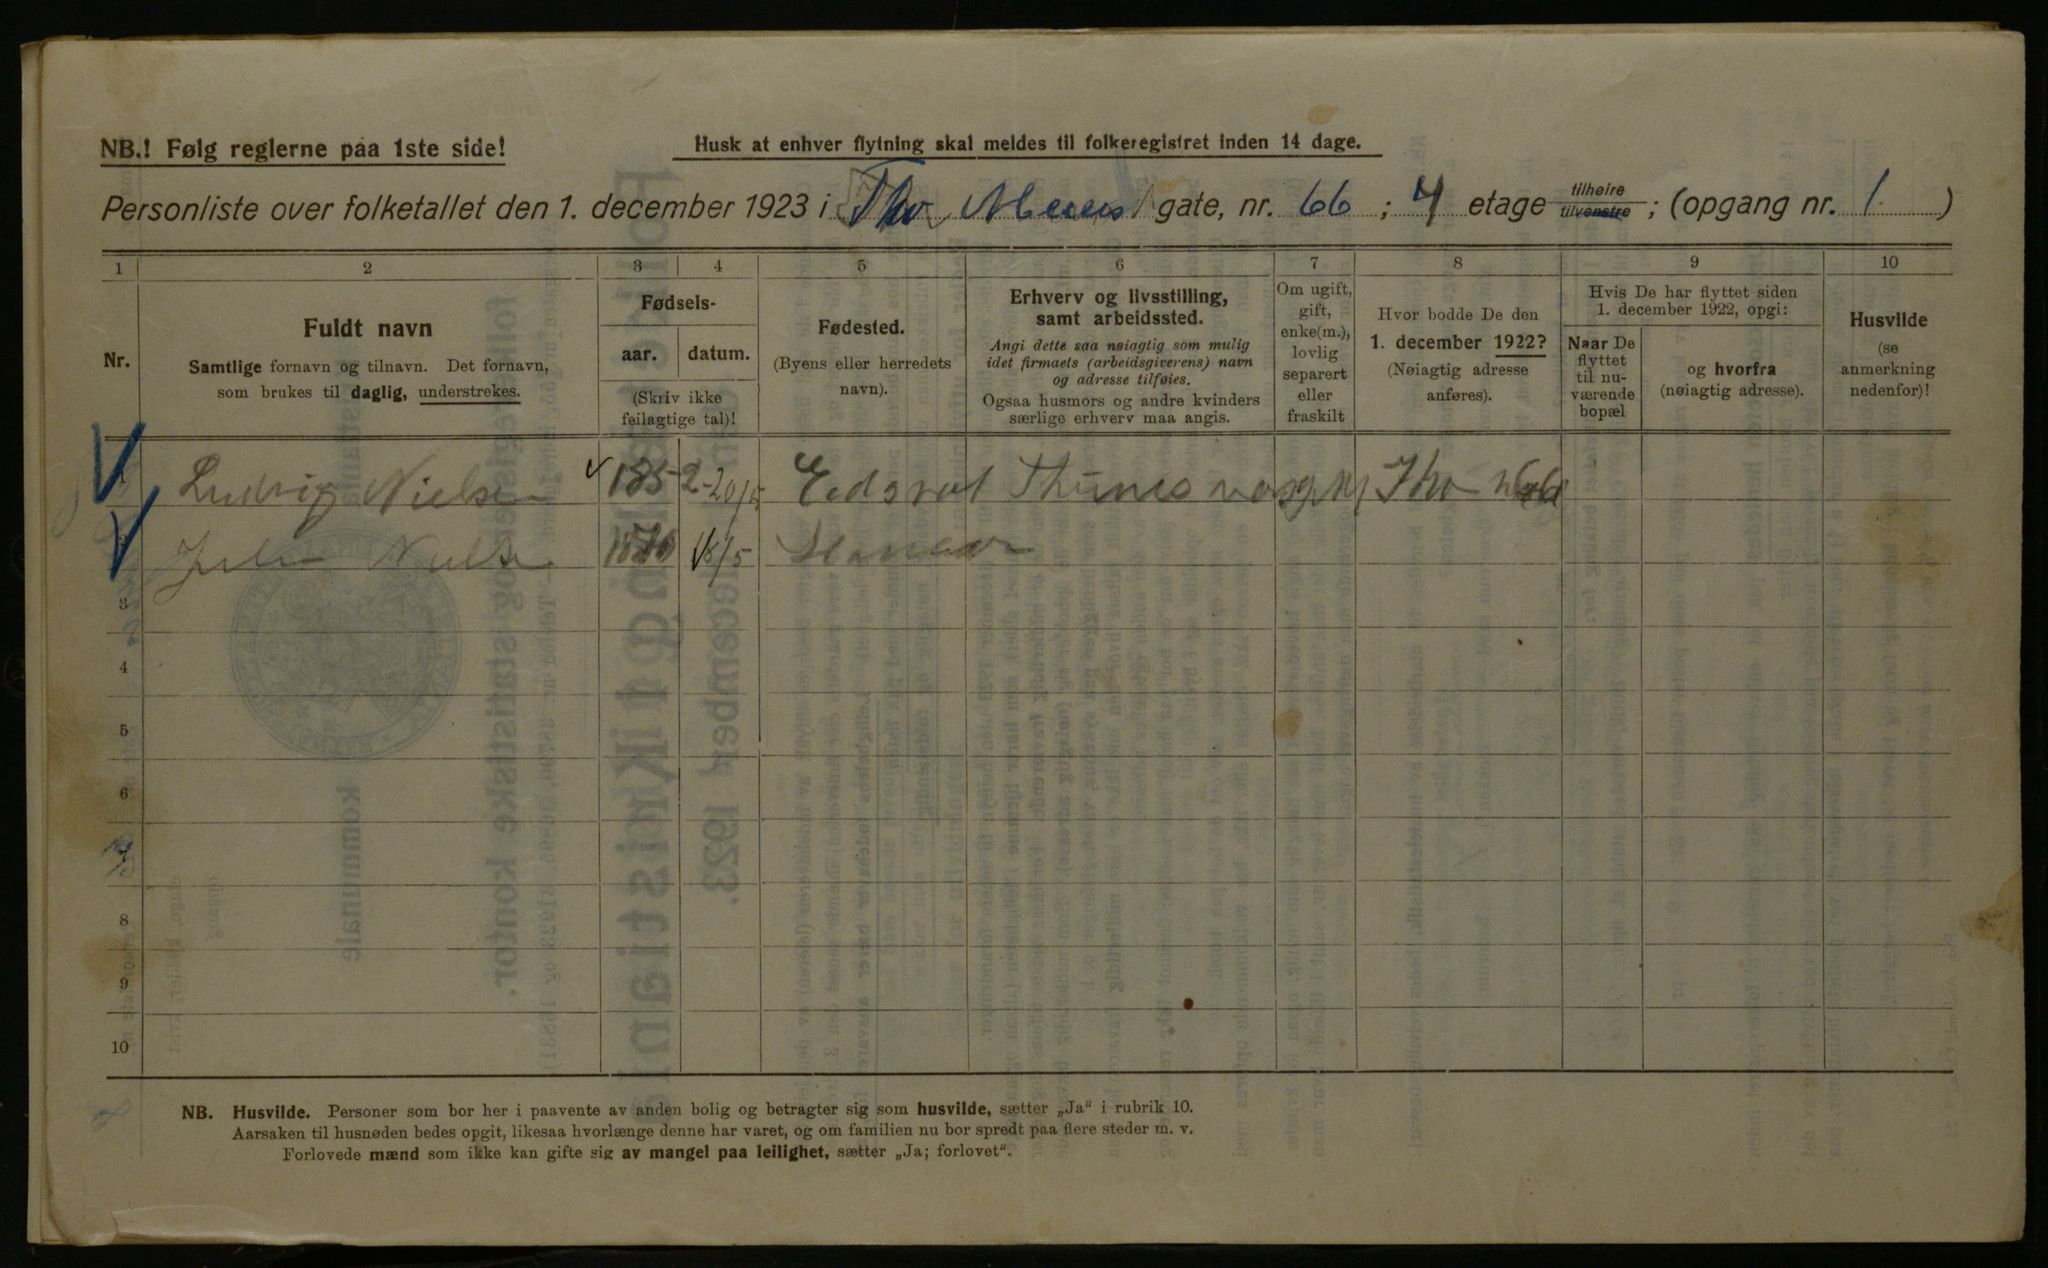 NB.! Følg reglerne paa 1ste side!
Husk at enhver flytning skal meldes til folkeregistret inden 14 dage.
Personliste over folketallet den 1. december 1923 i Thv Meyers gate, nr. 66 ; 4 etage tilhøire tilvenstre ; (opgang nr. 1 )
1 2 3 4 5 6 7 8 9 10
Nr.
Fuldt navn
Samtlige fornavn og tilnavn. Det fornavn,
som brukes til daglig, understrekes.
Fødsels-
aar. datum.
(Skriv ikke
feilagtige tal)!
Fødested.
(Byens eller herredets
navn).
Erhverv og livsstilling,
samt arbeidssted.
Angi dette saa nøiagtig som mulig
idet firmaets (arbeidsgiverens) navn
og adresse tilføies.
Ogsaa husmors og andre kvinders
særlige erhverv maa angis.
Om ugift,
gift,
enke(m.),
lovlig
separert
eller
fraskilt
Hvor bodde De den
1. december 1922?
(Nøiagtig adresse
anføres).
Hvis De har flyttet siden
1. december 1922, opgi:
Naar De
flyttet
til nu-
værende
bopæl
og hvorfra
(nøiagtig adresse).
Husvilde
(se
anmerkning
nedenfor)!
Ludvig Nielsen 1852 20/5 Eidsvol Thunes
Nielsen 18/5
3
4
5
6
7
8
9
10
NB. Husvilde. Personer som bor her i paavente av anden bolig og betragter sig som husvilde, sætter „Ja“ i rubrik 10.
Aarsaken til husnøden bedes opgit, likesaa hvorlænge denne har varet, og om familien nu bor spredt paa flere steder m. v.
Forlovede mænd som ikke kan gifte sig av mangel paa leilighet, sætter „Ja; forlovet“.